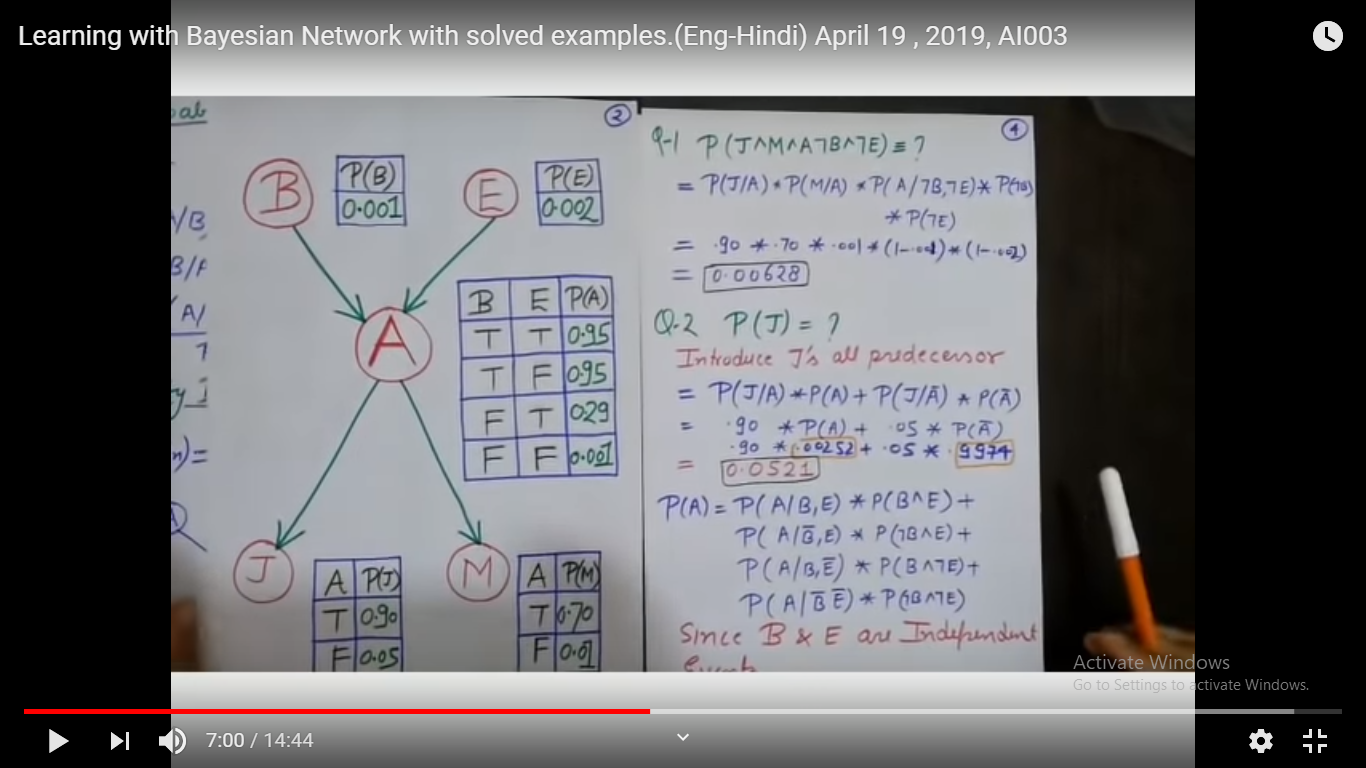 Learning with Bayesian Network with solved examples.(Eng-Hindi) April 19 , 2019, AI003
②
B
P(B)
0.001
E
P(E)
0.002
B E P(A)
T T 0.95
T F 0.95
F T 0.29
F F 0.001
A
J
A P(J)
T 0.90
F 0.05
M
A P(M)
T 0.70
F 0.01
④
Q-1 P(J∧M∧A¬B∧¬E) = ?
= P(J/A)*P(M/A) *P(A/¬B,¬E)* P(¬B)
*P(¬E)
= .90 * .70 * .001 * (1-.001)*(1-.002)
= 0.00628
Q.2 P(J) = ?
Introduce J's all predecessor
= P(J/A)*P(A) + P(J/Ā) * P(Ā)
= .90 *P(A) + .05 * P(Ā)
.90 * .00252 + .05 * .9974
= 0.0521
P(A) = P(A/B,E) * P(B∧E) +
P(A/B̄,E) * P(¬B∧E) +
P(A/B,Ē) * P(B∧¬E) +
P(A/B̄ Ē) * P(¬B∧¬E)
Since B & E are Independent
Activate Windows
Go to Settings to activate Windows.
7:00 / 14:44